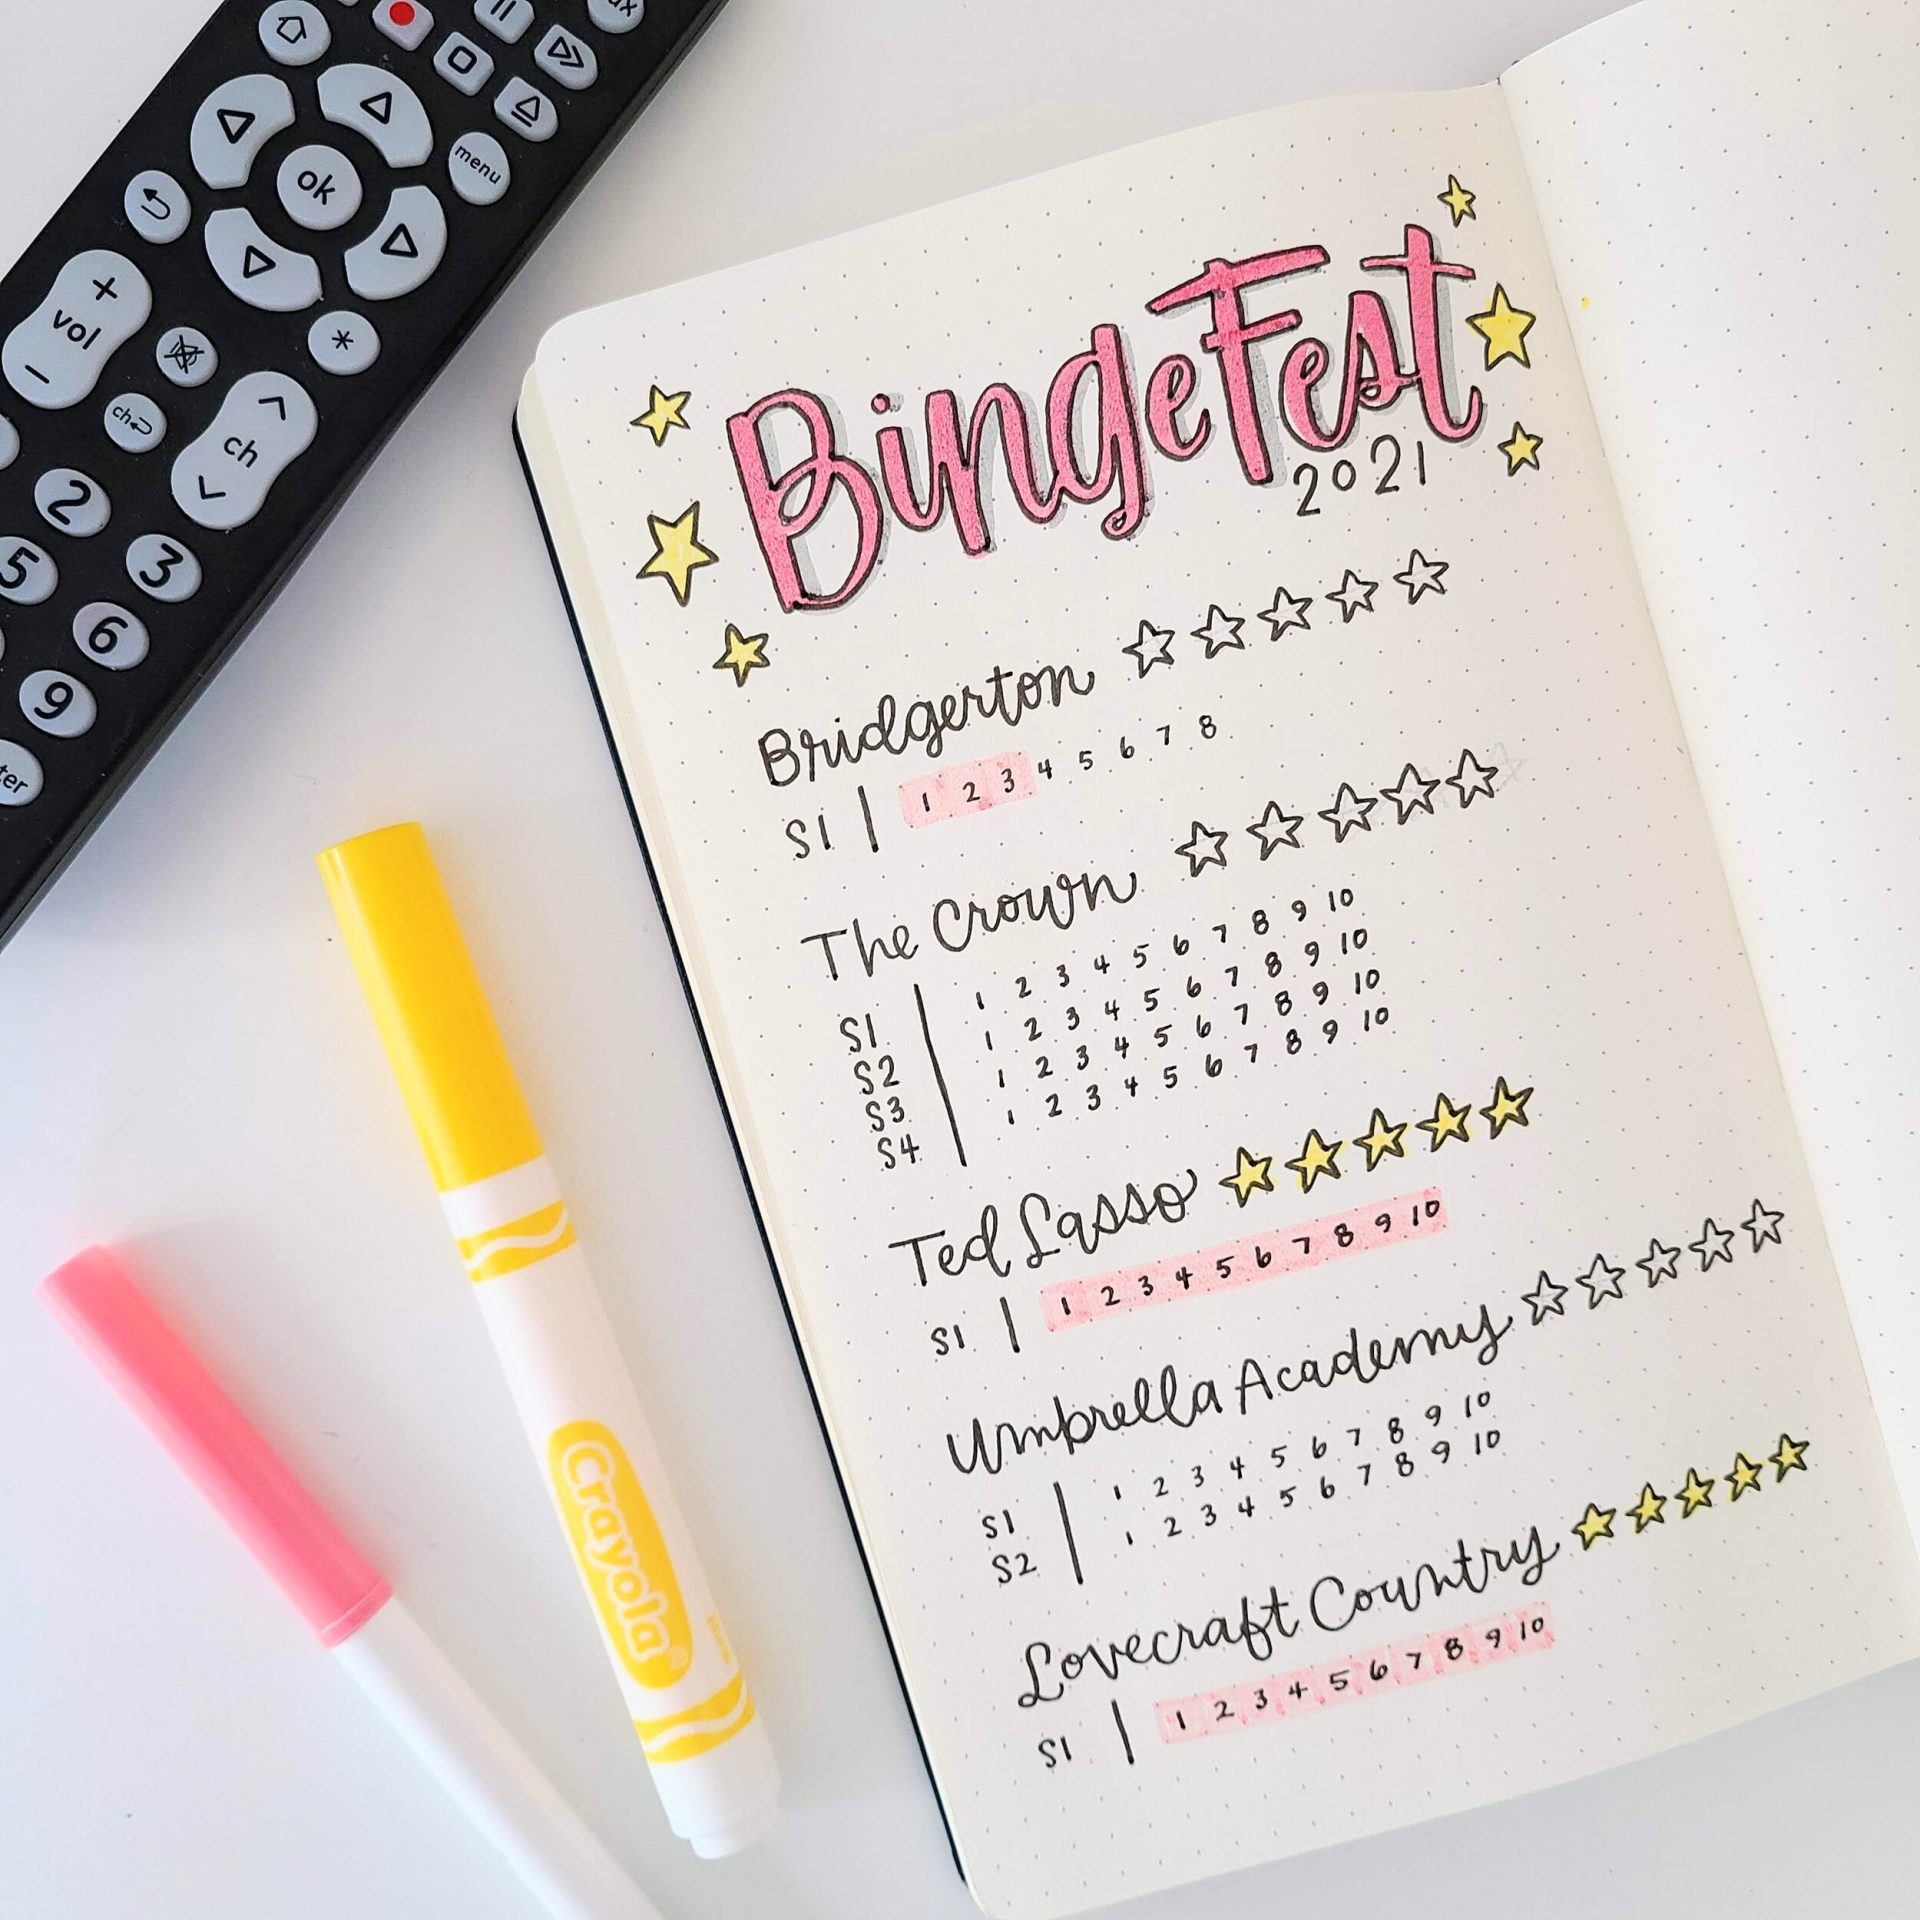 ux
menu
ok
+
vol
−
*
ch
ch
2
3
5
6
9
ter
BingeFest
2021
Bridgerton
S1 | 1 2 3 4 5 6 7 8
The Crown
S1 | 1 2 3 4 5 6 7 8 9 10
S2 | 1 2 3 4 5 6 7 8 9 10
S3 | 1 2 3 4 5 6 7 8 9 10
S4 | 1 2 3 4 5 6 7 8 9 10
Ted Lasso
S1 | 1 2 3 4 5 6 7 8 9 10
Umbrella Academy
S1 | 1 2 3 4 5 6 7 8 9 10
S2 | 1 2 3 4 5 6 7 8 9 10
Lovecraft Country
S1 | 1 2 3 4 5 6 7 8 9 10
Crayola®